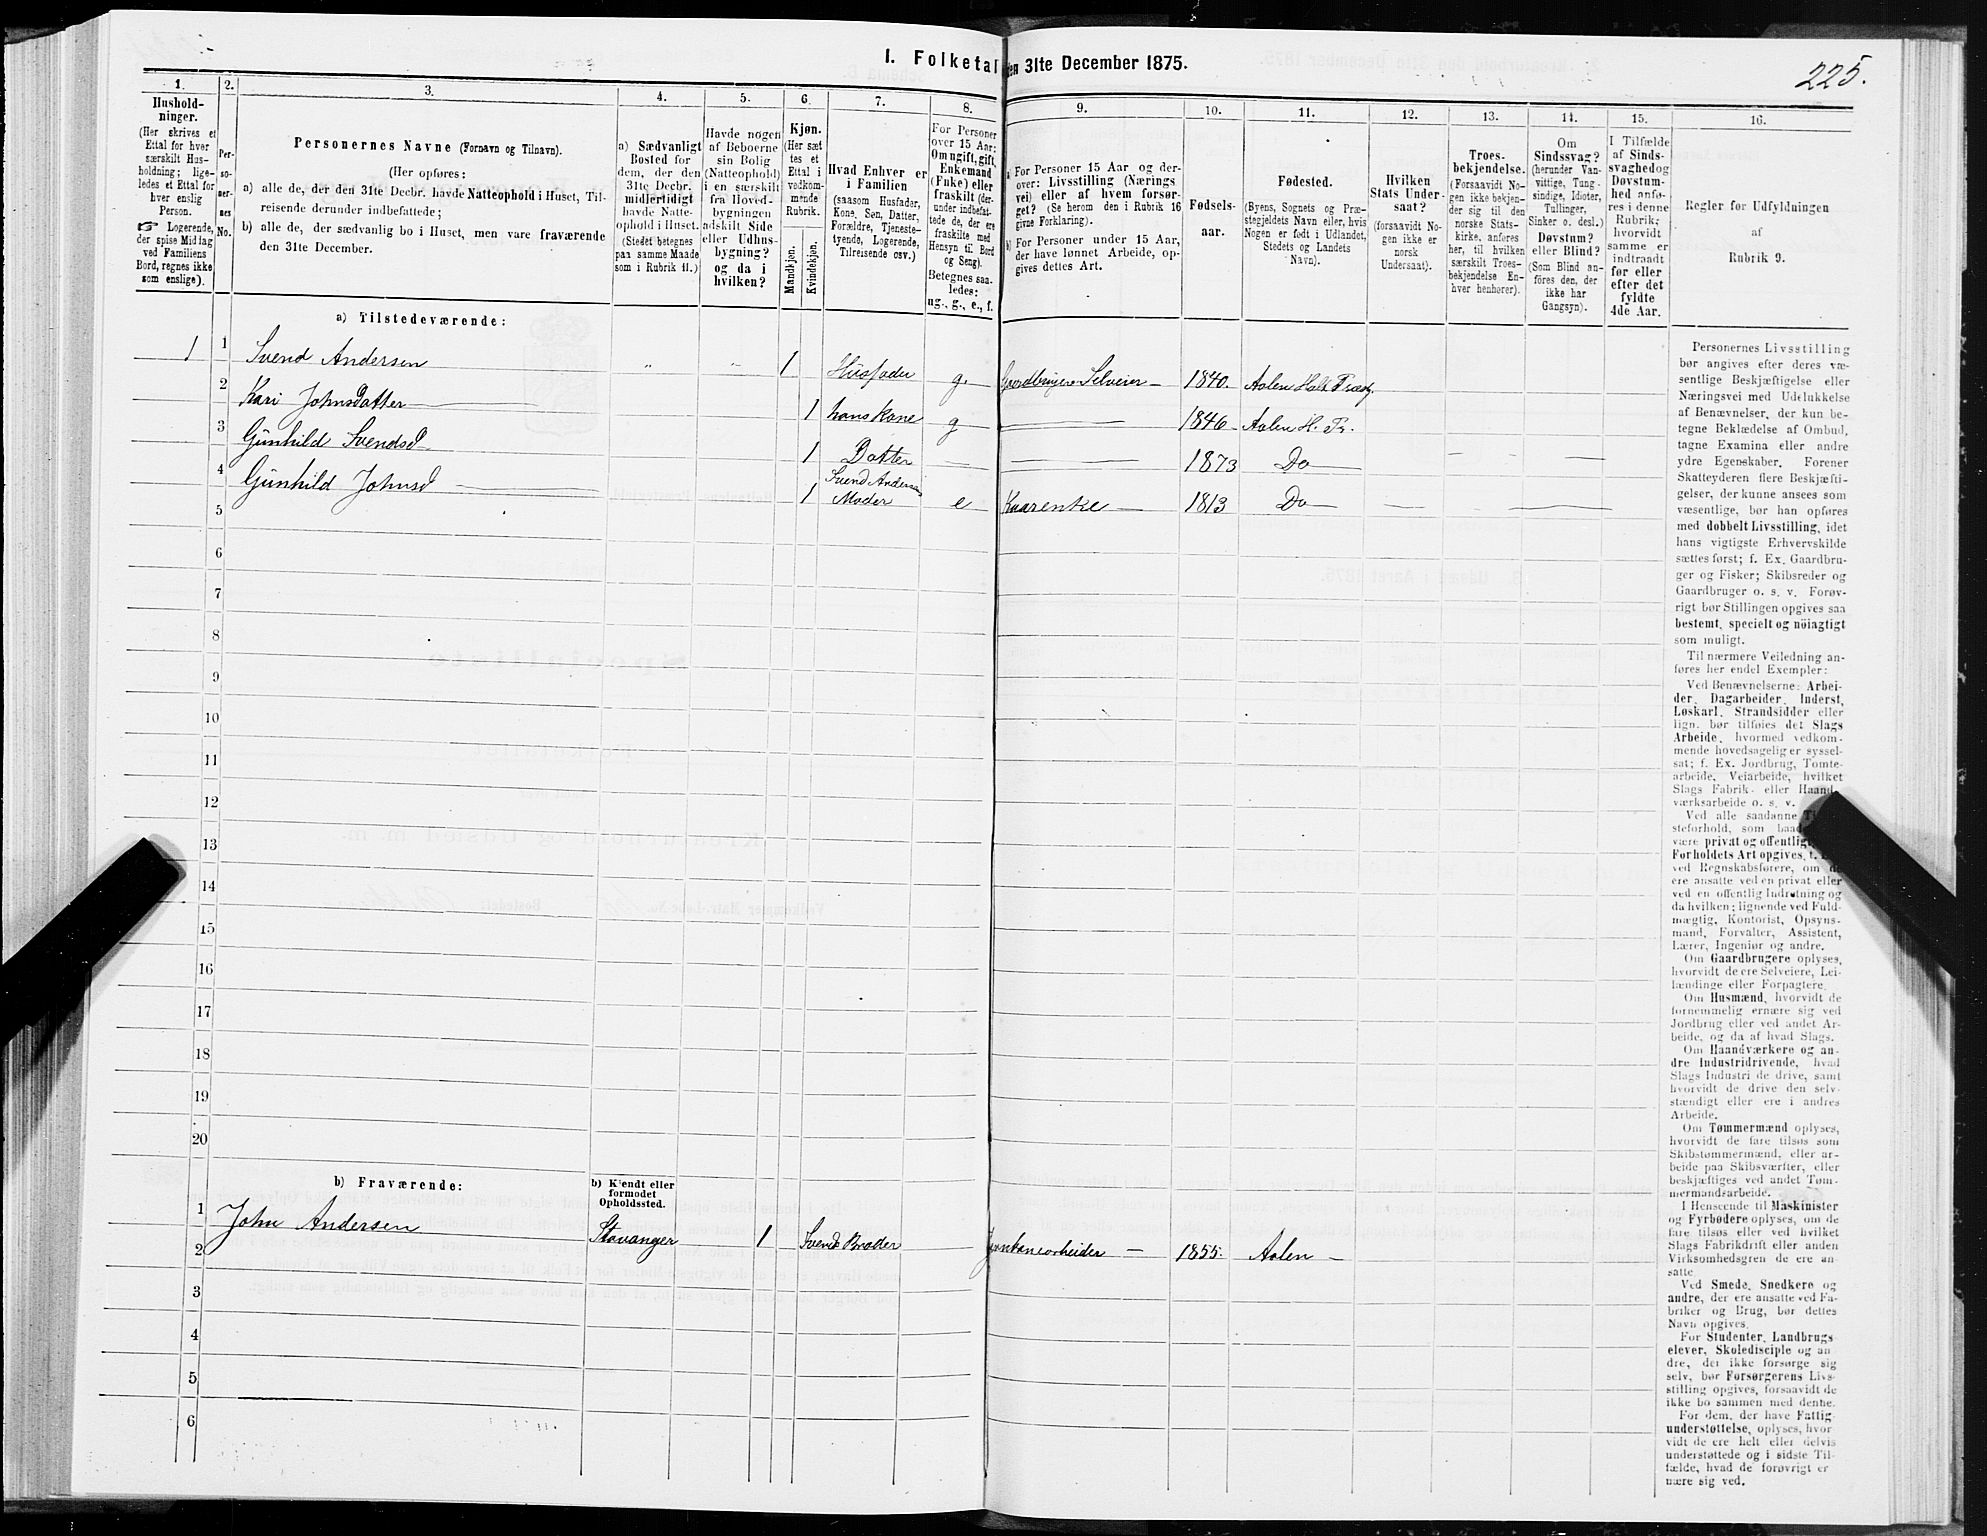 225.
I. Folketal
den 31te December 1875.
1.
Hushold-
ninger.
(Her skrives et
Ettal for hver
særskilt Hus-
holdning; lige-
ledes et Ettal for
hver enslig
Person.
☞ Logerende,
der spise Middag
ved Familiens
Bord, regnes ikke
som enslige).
2.
Per-
so-
ner-
nes
No.
3.
Personernes Navne (Fornavn og Tilnavn).
(Her opføres:
a) alle de, der den 31te Decbr. havde Natteophold i Huset, Til-
reisende derunder indbefattede;
b) alle de, der sædvanlig bo i Huset, men vare fraværende
den 31te December.
4.
a) Sædvanligt
Bosted for
dem, der den
31te Decbr.
midlertidigt
havde Natte-
ophold i Huset.
(Stedet betegnes
paa samme Maade
som i Rubrik 11.)
5.
Havde nogen
af Beboerne
sin Bolig
(Natteophold)
i en særskilt
fra Hoved-
bygningen
adskilt Side
eller Udhus-
bygning?
og da i
hvilken?
6.
Kjøn.
(Her sæt
tes et
Ettal i
vedkom-
mende
Rubrik.
Mandkjøn.
Kvindekjøn.
7.
Hvad Enhver er
i Familien
(saasom Husfader,
Kone, Søn, Datter,
Forældre, Tjeneste-
tyende, Logerende,
Tilreisende osv.)
8.
For Personer
over 15 Aar:
Om ugift, gift,
Enkemand
(Enke) eller
fraskilt (der-
under indbefat-
tede de, der ere
fraskilte med
Hensyn til Bord
og Seng).
Betegnes saa-
ledes:
ug., g., e., f.
9.
a. For Personer 15 Aar og der-
over: Livsstilling (Nærings
vei) eller af hvem forsør-
get? (Se herom den i Rubrik 16
givne Forklaring).
b) For Personer under 15 Aar,
der have lønnet Arbeide, op-
gives dettes Art.
10.
Fødsels-
aar.
11.
Fødested.
(Byens, Sognets og Præ-
stegjeldets Navn eller, hvis
Nogen er født i Udlandet,
Stedets og Landets
Navn).
12.
Hvilken
Stats Under-
saat?
(forsaavidt No-
gen ikke er
norsk
Undersaat).
13.
Troes-
bekjendelse.
(Forsaavidt No-
gen ikke bekjen-
der sig til den
norske Stats-
kirke, anføres
her, til hvilken
særskilt Troes-
bekjendelse En-
hver henhører).
14.
Om
Sindssvag?
(herunder Van-
vittige, Tung-
sindige, Idioter,
Tullinger,
Sinker o. desl.)
Døvstum?
eller Blind?
(Som Blind an-
føres den, der
ikke har
Gangsyn).
15.
I Tilfælde
af Sinds-
svaghed og
Døvstum-
hed anfø-
res i denne
Rubrik,
hvorvidt
samme er
indtraadt
før eller
efter det
fyldte
4de Aar.
16.
Regler for Udfyldningen
af
Rubrik 9.
a) Tilstedeværende:
1 1 Svend Andersen " " 1 Husfader g. Gaardbruger Selveier 1840. Aalen Holt. Præstg.
2 Kari Johnsdatter 1 hans kone g 1846 Aalen H. Pr.
3 Gunhild Svendsd 1 Datter 1873 Do
4 Gunhild Johnsd 1 Svend Andersens
Moder e Kaarenke 1813 Do
5
6
7
8
9
10
11
12
13
14
15
16
17
18
19
20
b) Fraværende:
b) Kjendt eller
formodet
Opholdssted.
1 John Andersen Stavanger 1 Svends Broder Jernbanearbeider 1855. Aalen
2
3
4
5
6
Personernes Livsstilling
bør angives efter deres væ-
sentlige Beskjæftigelse eller
Næringsvei med Udelukkelse
af Benævnelser, der kun be-
tegne Beklædelse af Ombud,
tagne Examina eller andre
ydre Egenskaber. Forener
Skatteyderen flere Beskjæfti-
gelser, der kunne ansees som
væsentlige, bør han opføres
med dobbelt Livsstilling, idet
hans vigtigste Erhvervskilde
sættes først; f. Ex. Gaardbru-
ger og Fisker; Skibsreder og
Gaardbruger o. s. v. Forøv-
rigt bør Stillingen opgives saa
bestemt, specielt og nöiagtigt
som muligt.
Til nærmere Veiledning an-
føres her endel Exempler:
Ved Benævnelserne: Arbei-
der, Dagarbeider, Inderst,
Løskarl, Strandsidder eller
lign. bør tilføies det Slags
Arbeide, hvormed vedkom-
mende hovedsagelig er syssel-
sat; f. Ex. Jordbrug, Tomte-
arbeide, Veiarbeide, hvilket
Slags Fabrik- eller Haand-
værksarbeide o. s. v.
Ved alle saadanne
steforhold, som
være privat og offentlig
Forholdets Art opgives,
ved Regnskabsførere, om
ere ansatte ved en privat eller
ved en offentlig Indretning og
da hvilken; lignende ved Fuld-
mægtig, Kontorist, Opsyns-
mand, Forvalter, Assistent,
Lærer, Ingeniør og andre.
Om Gaardbrugere oplyses,
hvorvidt de ere Selveiere, Lei-
lændinge eller Forpagtere.
Om Husmænd, hvorvidt de
fornemmelig ernære sig ved
Jordbrug eller ved andet Ar-
beide, og da af hvad Slags.
Om Haandværkere og an-
dre Industridrivende, hvad
Slags Industri de drive, samt
hvorvidt de drive den selv-
stændigt eller ere i andres
Arbeide.
Om Tømmermænd oplyses,
hvorvidt de fare tilsøs som
Skibstømmermænd, eller ar-
beide paa Skibsværfter, eller
beskjæftiges ved andet Tøm-
mermandsarbeide.
I Henseende til Maskinister
og Fyrbødere oplyses, om de
fare tilsøs eller ved hvilket
Slags Fabrikdrift eller anden
Virksomhedsgren de ere an-
satte.
Ved Smede, Snedkere og
andre, der ere ansatte ved Fa-
briker og Brug, bør dettes
Navn opgives.
For Studenter, Landbrugs
elever, Skoledisciple og an
dre, der ikke forsørge sig
selv, bør Forsørgerens Livs-
stilling opgives, forsaavidt de
ikke bo sammen med denne.
For dem, der have Fattig-
understøttelse, oplyses, hvor
vidt de ere helt eller delvis
understøttede og i sidste Til-
fælde, hvad de forøvrigt er
nære sig ved.